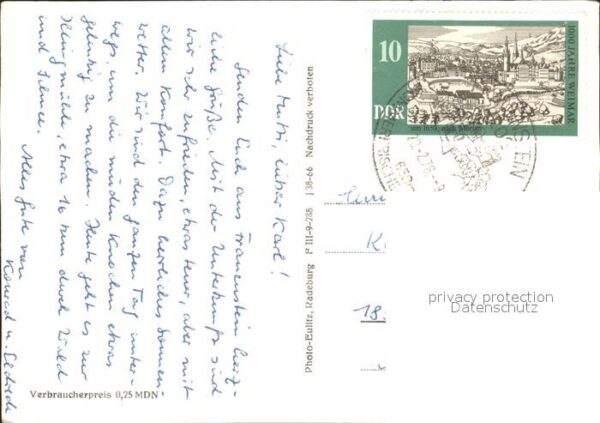 Liebe Mutti, lieber Karl!
Senden Euch aus Frauenstein herz-
liche Grüße. Mit der Unterkunft sind
wir sehr zufrieden, etwas teuer, aber mit
allem Komfort. Dazu herrliches Sonnen-
wetter. Wir sind den ganzen Tag unter-
wegs, um die müden Knochen etwas
gelenkig zu machen. Heute geht es zur
Illingmühle, etwa 16 km durch Wald
und Schnee.
Alles Gute von
Konrad u.
Verbraucherpreis 0,25 MDN
Photo-Eulitz, Radeburg P III-9-735 J 38-66 Nachdruck verboten
10
DDR
1000 JAHRE WEIMAR
um 1650, nach Merian
K
18
privacy protection
Datenschutz